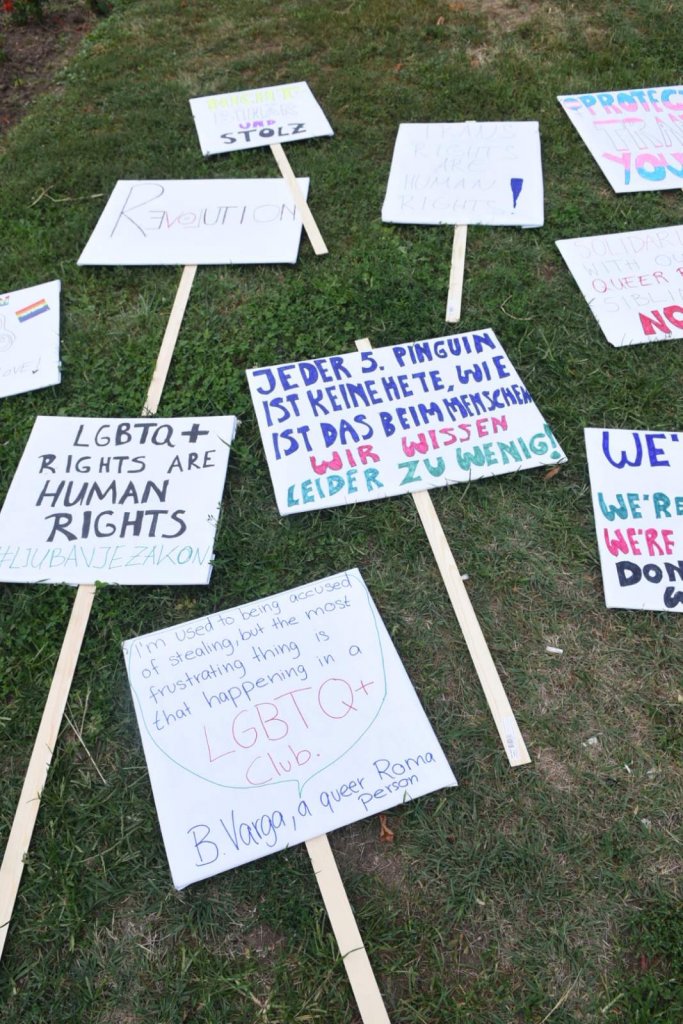 UND
STOLZ
REVOLUTION
TRANS
RIGHTS
ARE
HUMAN
RIGHTS !
PROTECT
TRA
YOU
SOLIDARI
WITH OU
QUEER R
SIBLI
NO
OVE!
JEDER 5. PINGUIN
IST KEINE HETE, WIE
IST DAS BEIM MENSCHEN
WIR WISSEN
LEIDER ZU WENIG!
LGBTQ+
RIGHTS ARE
HUMAN
RIGHTS
#LJUBAVJEZAKON
WE'
WE'RE
WE'RE
DON
W
I'm used to being accused
of stealing, but the most
frustrating thing is
that happening in a
LGBTQ+
Club.
B. Varga, a queer Roma
person